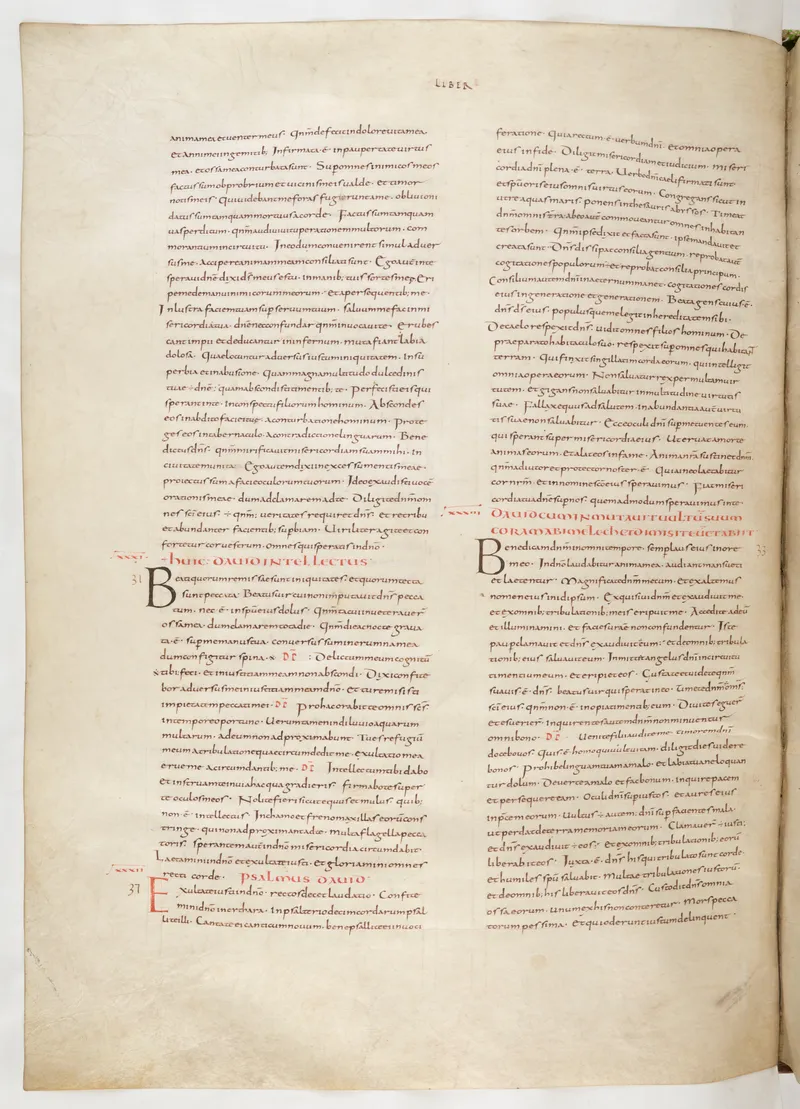 LIBER
anima mea et uenter meus. Qnm defecit in dolore uita mea
et anni mei in gemitib; Infirmata ÷ in paupertate uirtus
mea. et ossa mea conturbata sunt. Sup omnes inimicos meos
factus sum obprobrium et uicinis meis ualde. et timor
notis meis. Qui uidebant me foras fugierunt a me. obliuioni
datus sum tamquam mortuus a corde. Factus sum tamquam
uas perditum. qnm audiui uituperationem multorum. com
morantium in circuitu. In eo dum conuenirent simul aduer
sus me. accipere animam meam consiliati sunt. Ego aut in te
speraui dne dixi ds meus es tu. in manib; tuis sortes meę Eri
pe me de manu inimicorum meorum. et a persequentib; me.
Inlustra faciem tuam sup seruum tuum. saluum me fac in mi
sericordia tua. dne ne confundar qnm inuocaui te. Erubes
cant impii et deducantur in infernum. muta fiant labia
dolosa. Quae locuntur aduersus iustum iniquitatem. In su
perbia et in abusione. Quam magna multitudo dulcedinis
tuae dne. quam abscondisti timentib; te. Perfecisti eis qui
sperant in te. in conspectu filiorum hominum. Abscondes
eos in abdito faciei tuae. a conturbatione hominum. Prote
ges eos in tabernaculo. a contradictione linguarum. Bene
dictus dns. qnm mirificauit misericordiam suam mihi. in
ciuitate munita. Ego aut dixi in excessu mentis meae.
proiectus sum a facie oculorum tuorum. Ideo exaudisti uocē
orationis meae. dum clamarem ad te. Diligite dnm om
nes sci eius ÷ qnm: ueritates requiret dns. et retribu
et abundanter facientib; supbiam. Uiriliter agite et con
fortetur cor uestrum. omnes qui speratis in dno.
XXXI huic DAUID INTELLECTUS
31 Beati quorum remissae sunt iniquitates. et quorum tecta
sunt peccata. Beatus uir cui non inputauit dns pecca
tum. nec ÷ in spu eius dolus. Qnm tacui inueterauer
ossa mea. dum clamarem tota die. Qnm die ac nocte grauata
ta ÷ sup me manus tua. conuersus sum in erumna mea
dum configitur spina. Delictum meum cognitū
tibi feci. et iniustitiam meam non abscondi. Dixi confite
bor aduersus me iniustitiam meam dno. et tu remisisti
impietatem peccati mei. Pro hac orabit ad te omnis scs.
in tempore oportuno. Uerumtamen in diluuio aquarum
multarum. ad eum non adproximabunt. Tu es refugiū
meum a tribulatione quae circumdedit me. exultatio mea
erue me a circumdantib; me. Intellectum tibi dabo
et instruam te in uia hac qua gradieris. firmabo te super
te oculos meos. Nolite fieri sicut equus et mulus. quib;
non ÷ intellectus. In chamo et freno maxillas eorū cons
tringe. qui non adproximant ad te. Multa flagella pecca
toris. sperantem aut in dno misericordia circumdabit.
Laetamini in dno et exultate iusti. et gloriamini omnes
recti corde. PSALMUS DAUID
XXXII
37 Exultate iusti in dno. rectos decet laudatio. Confite
mini dno in cithara. in psalterio decem cordarum psal
lite illi. Cantate ei canticum nouum. bene psallite ei in uoci
feratione. Quia rectum ÷ uerbum dni. et omnia opera
eius in fide. Diligit misericordiam et iudicium. miseri
cordia dni plena ÷ terra. Uerbo dni caeli firmati sunt.
et spu oris eius omnis uirtus eorum. Congregans sicut in
utre aquas maris. ponens in thesauris abyssos. Timeat
dnm omnis terra. ab eo aut commoueantur omnes inhabitan
tes orbem. Qnm ipse dixit et facta sunt. ipse mandauit et
creata sunt. Dns dissipat consilia gentium. reprobat aut
cogitationes populorum. et reprobat consilia principum.
Consilium autem dni in aeternum manet. cogitationes cordis
eius in generatione et generationem. Beata gens cuius ÷
dns ds eius. populus quem elegit in hereditatem sibi.
De caelo respexit dns. uidit omnes filios hominum. De
praeparato habitaculo suo. respexit sup omnes qui habitant
terram. Qui finxit singillatim corda eorum. qui intelligit
omnia opera eorum. Non saluatur rex per multam uir
tutem. et gigans non saluabitur in multitudine uirtutis
suae. Fallax equus ad salutem. in abundantia aut uirtu
tis suae non saluabitur. Ecce oculi dni sup metuentes eum.
qui sperant super misericordia eius. Ut eruat a morte
animas eorum. et alat eos in fame. Anima nra sustinet dnm.
qnm adiutor et protector noster ÷. Quia in eo laetabitur
cor nrm. et in nomine sco eius sperauimus. Fiat miseri
cordia tua dne sup nos. quemadmodum sperauimus in te.
XXXIII DAUID CUM INMUTAUIT UULTŪ SUUM
CORAM ABIMELECH ET DIMISIT EŪ ET ABIIT
33 Benedicam dnm in omni tempore. semp laus eius in ore
meo. In dno laudabitur anima mea. audiant mansueti
et laetentur. Magnificate dnm mecum. et exaltemus
nomen eius in id ipsum. Exquisiui dnm et exaudiuit me.
et ex omnib; tribulationib; meis eripuit me. Accedite ad eū
et inluminamini. et facies uestrae non confundentur. Iste
pauper clamauit et dns exaudiuit eum. et de omnib; tribula
tionib; eius saluauit eum. Inmittit angelus dni in circuitu
timentium eum. et eripiet eos. Gustate et uidete qnm
suauis ÷ dns. beatus uir qui sperat in eo. Timete dnm oms
sci eius. qnm non ÷ inopia timentib; eum. Diuites eguer
et esurier. inquirentes aut dnm non minuentur
omni bono. Uenite filii audite me. timorem dni
docebo uos. Quis ÷ homo qui uult uitam. diligit dies uidere
bonos. Prohibe linguam tuam a malo. et labia tua ne loquan
tur dolum. Deuerte a malo et fac bonum. inquire pacem
et persequere eam. Oculi dni sup iustos. et aures eius
in precem eorum. Uultus ÷ autem: dni sup facientes mala.
ut perdat de terra memoriam eorum. Clamauer ÷ iusti:
et dns exaudiuit ÷ eos: et ex omnib; tribulationib; eorū
liberabit eos. Iuxta ÷ dns his qui tribulato sunt corde.
et humiles spu saluabit. Multae tribulationes iustorū.
et de omnib; his liberauit eos dns. Custodit dns omnia
ossa eorum. unum ex his non conteretur. Mors pecca
torum pessima. et qui oderunt iustum delinquent